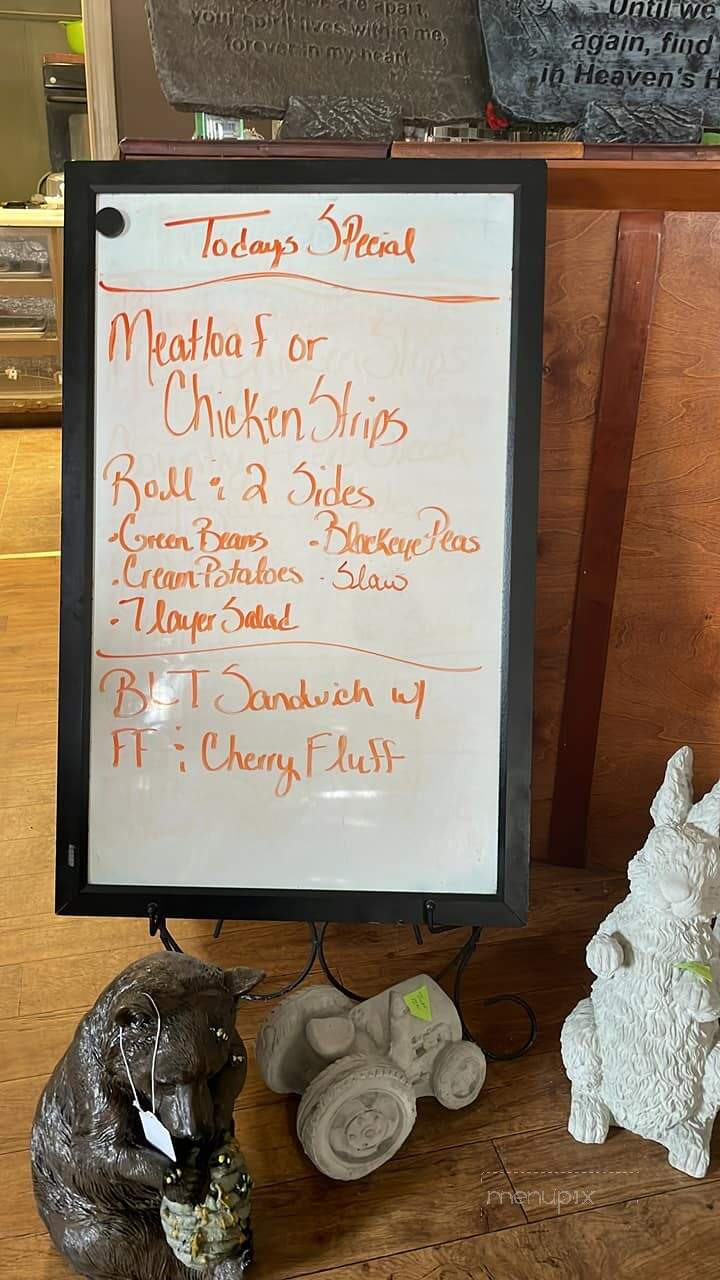 are apart,
your spirit lives within me,
forever in my heart
Until we
again, find
in Heaven's H
Todays Special
Meatloaf or
Chicken Strips
Roll & 2 Sides
·Green Beans ·Blackeye Peas
·Cream Potatoes ·Slaw
·7 layer Salad
BLT Sandwich w/
FF & Cherry Fluff
menupix